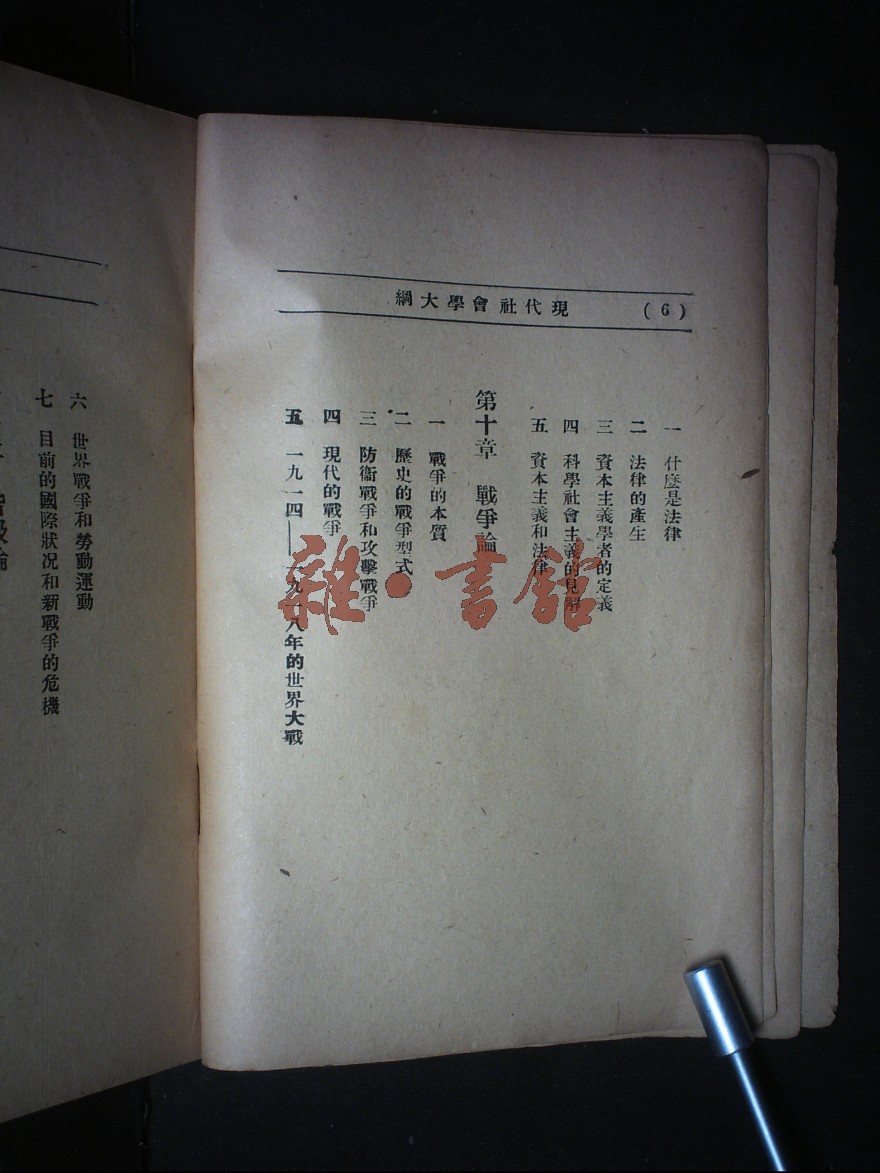 (6)
現代社會學大綱
一 什麼是法律
二 法律的產生
三 資本主義學者的定義
四 科學社會主義的見解
五 資本主義和法律
第十章 戰爭論
一 戰爭的本質
二 歷史的戰爭型式
三 防衞戰爭和攻擊戰爭
四 現代的戰爭
五 一九一四——一九一八年的世界大戰
六 世界戰爭和勞動運動
七 目前的國際狀况和新戰爭的危機
雜·書館